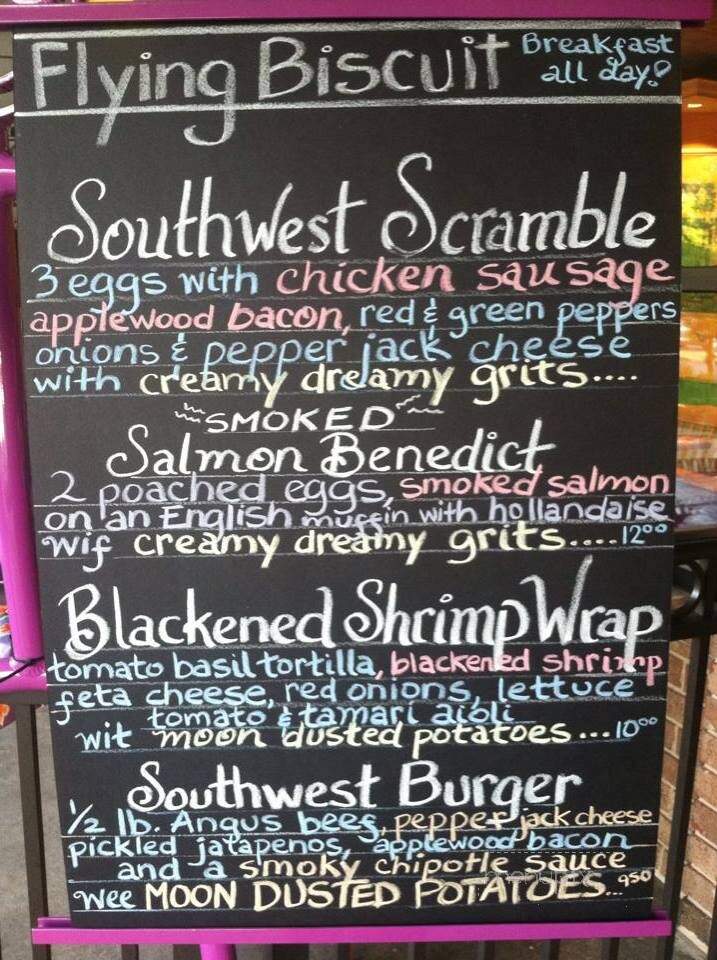 Flying Biscuit Breakfast
all day!
Southwest Scramble
3 eggs with chicken sausage
applewood bacon, red & green peppers
onions & pepper jack cheese
with creamy dreamy grits....
SMOKED
Salmon Benedict
2 poached eggs, smoked salmon
on an English muffin with hollandaise
wif creamy dreamy grits.....12⁰⁰
Blackened Shrimp Wrap
tomato basil tortilla, blackened shrimp
feta cheese, red onions, lettuce
tomato & tamari aioli
wit moon dusted potatoes...10⁰⁰
Southwest Burger
1/2 lb. Angus beef, pepper jack cheese
pickled jalapenos, applewood bacon
and a smoky chipotle sauce
wee MOON DUSTED POTATOES...9⁵⁰